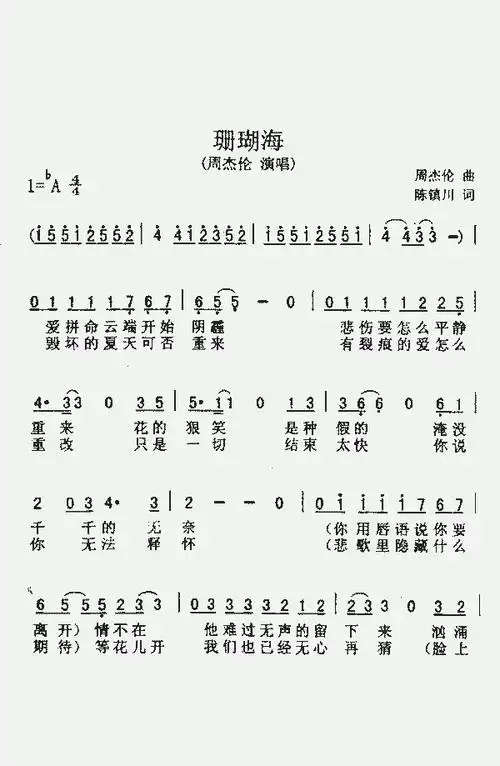 珊瑚海
(周杰伦 演唱)
1=bA 4/4
周杰伦 曲
陈镇川 词
(i 5 5 1 2 5 5 2 | 4 4 1 2 3 5 5 | i 5 5 1 2 5 5 1 | 4 4 3 3 -) |
0 1 1 1 1 7 6 7 | 6 5 5 - 0 | 0 1 1 1 1 2 2 5 |
爱拼命云端开始 阴霾 悲伤要怎么平静
毁坏的夏天可否 重来 有裂痕的爱怎么
4· 3 3 0 3 5 | 8· 1 1 0 1 3 | 3 6 6 0 6 1 |
重来 花的 狠笑 是种 假的 淹没
重改 只是 一切 结束 太快 你说
2 0 3 4· 3 | 2 - - 0 | 0 i i i i 7 6 7 |
千 千的 无奈 (你用唇语说你要
你 无法 释怀 (悲歌里隐藏什么
6 5 5 5 2 3 | 3 - - - | 0 3 3 3 3 2 1 2 | 2 3 3 0 3 2 |
离开) 情不在 他难过无声的留 下来 汹涌
期待) 等花儿开 我们也已经无心 再猜 (脸上